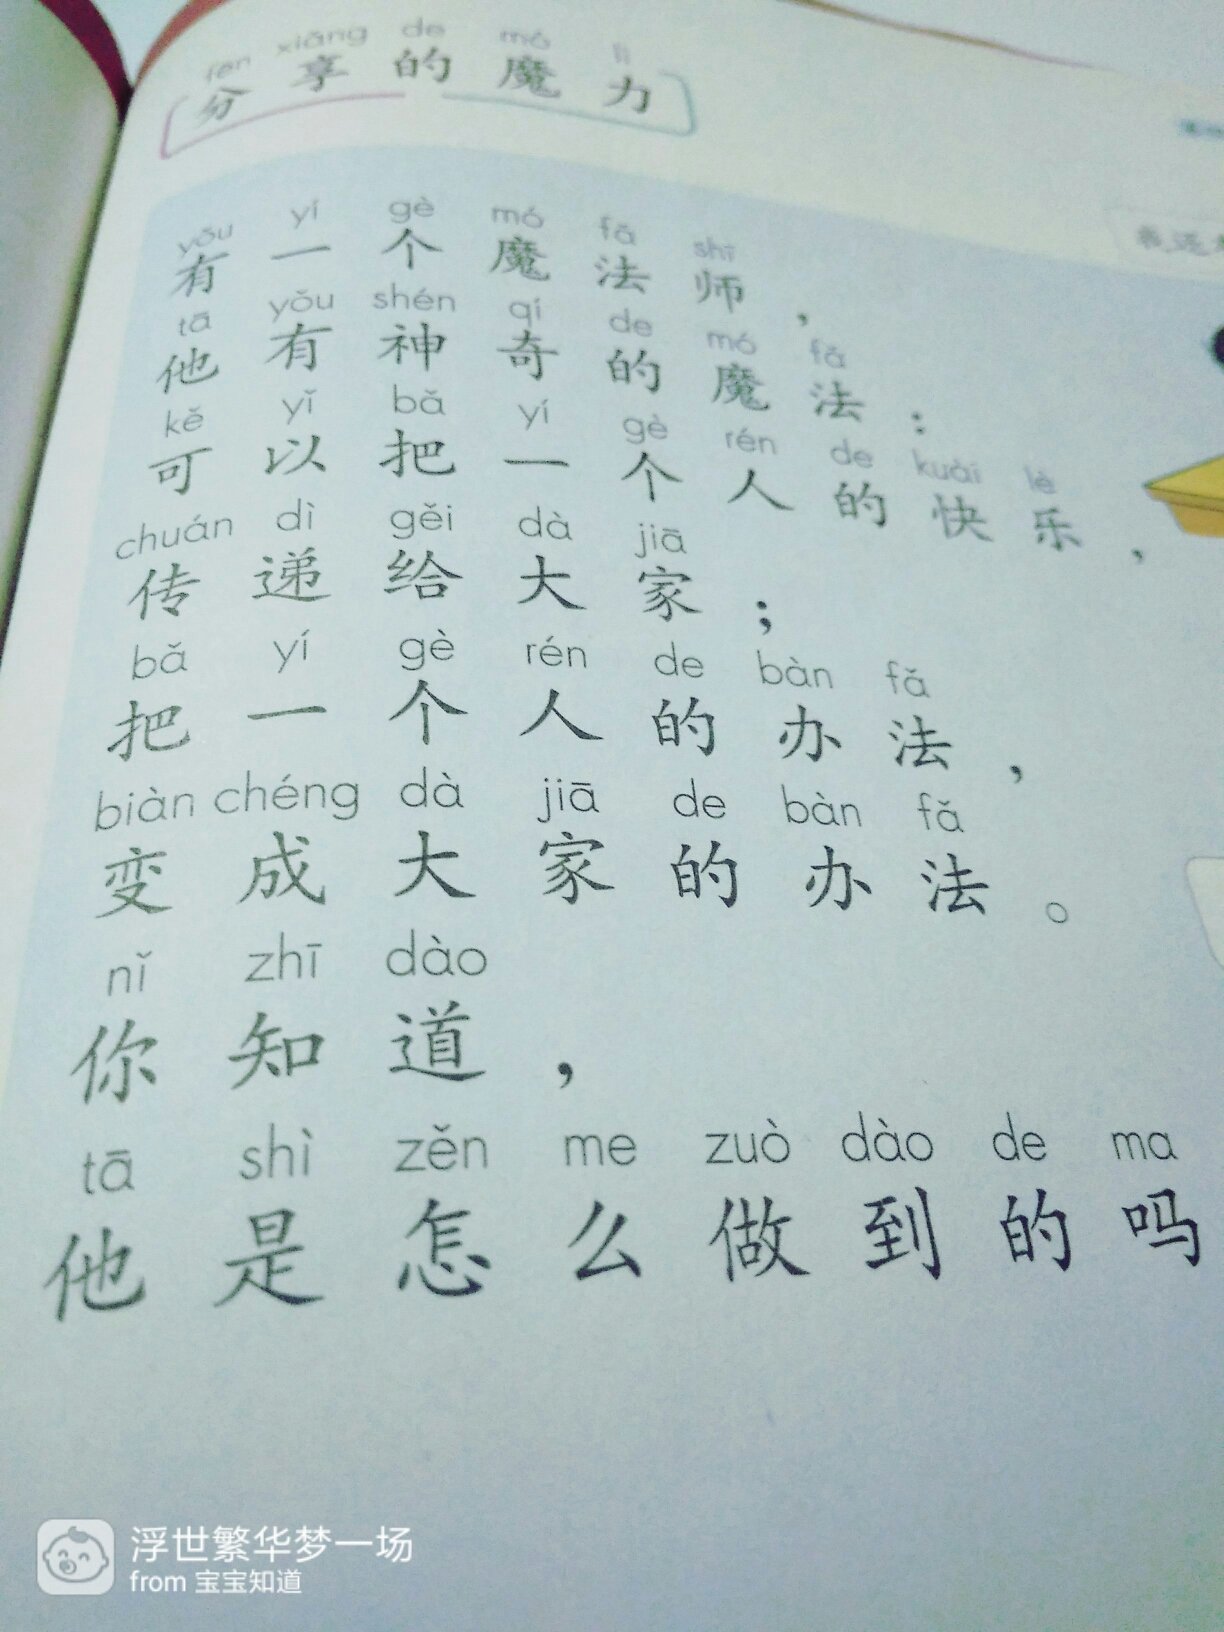 fēn xiǎng de mó lì
分享的魔力
yǒu yí gè mó fǎ shī
有一个魔法师，
tā yǒu shén qí de mó fǎ
他有神奇的魔法：
kě yǐ bǎ yí gè rén de kuài lè
可以把一个人的快乐，
chuán dì gěi dà jiā
传递给大家；
bǎ yí gè rén de bàn fǎ
把一个人的办法，
biàn chéng dà jiā de bàn fǎ
变成大家的办法。
nǐ zhī dào
你知道，
tā shì zěn me zuò dào de ma
他是怎么做到的吗
浮世繁华梦一场
from 宝宝知道